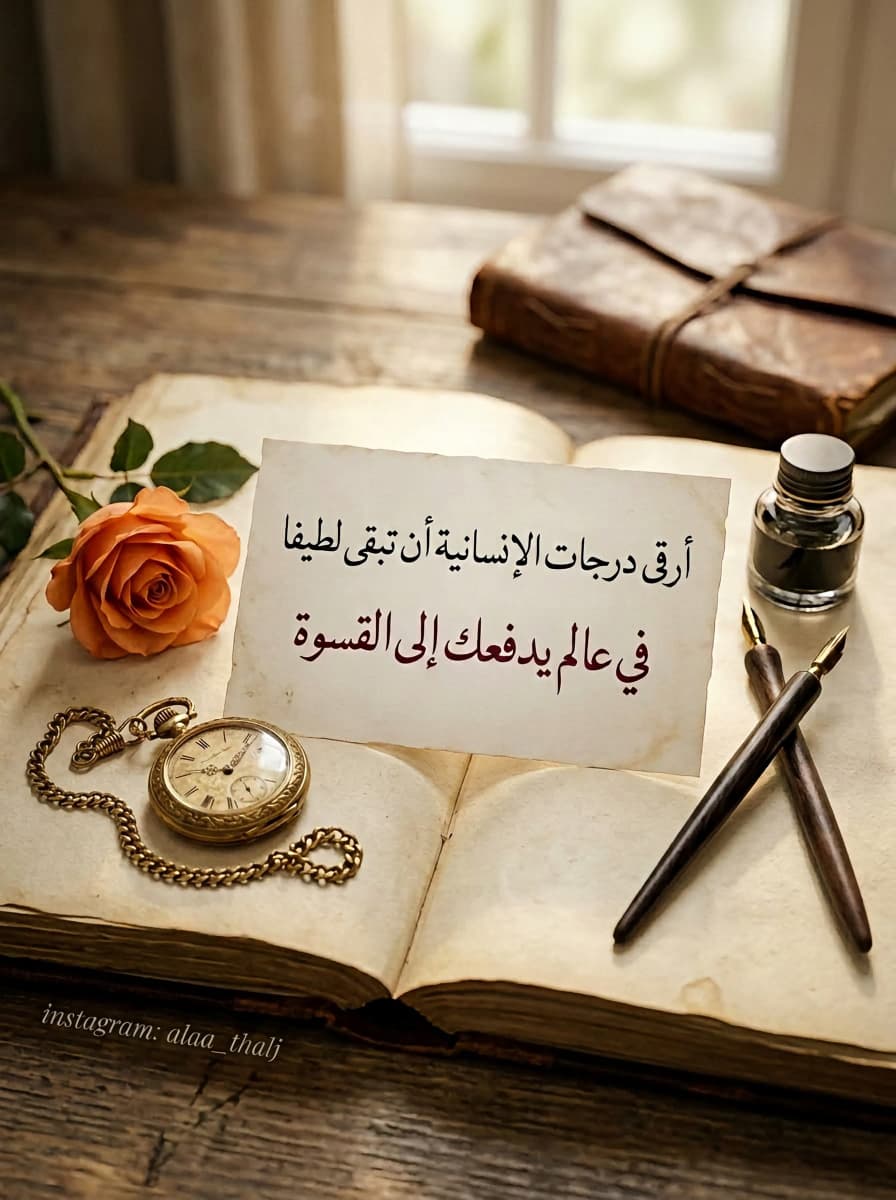 أرقى درجات الإنسانية أن تبقى لطيفا
في عالم يدفعك إلى القسوة
instagram: alaa_thalj